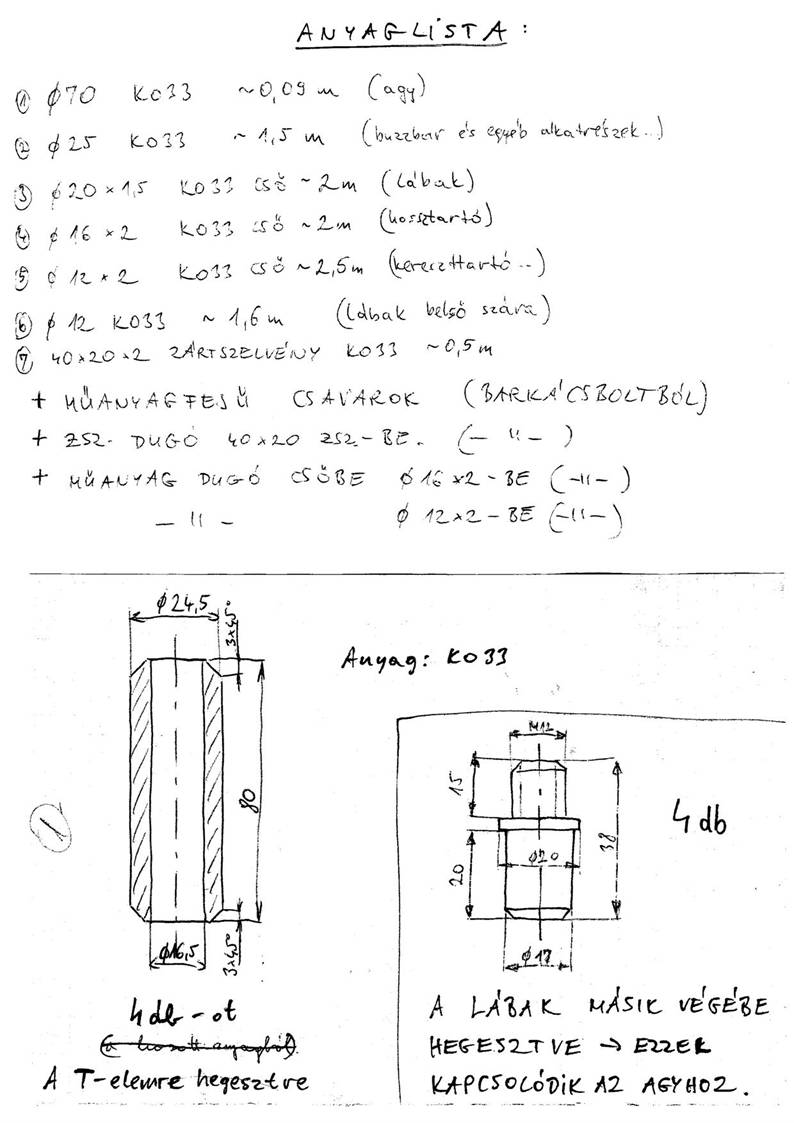 ANYAGLISTA:
① φ70 KO33 ~0,09 m (agy)
② φ25 KO33 ~1,5 m (buzzbar és egyéb alkatrészek..)
③ φ20×1,5 KO33 cső ~2m (lábak)
④ φ16×2 KO33 cső ~2m (hossztartó)
⑤ φ12×2 KO33 cső ~2,5m (kereszttartó..)
⑥ φ12 KO33 ~1,6m (lábak belső szára)
⑦ 40×20×2 ZÁRTSZELVÉNY KO33 ~0,5m
+ MŰANYAGFEJŰ CSAVAROK (BARKÁCSBOLTBÓL)
+ ZSZ- DUGÓ 40×20 ZSZ-BE. (-"-)
+ MŰANYAG DUGÓ CSŐBE φ16×2-BE (-"-)
-"- φ12×2-BE (-"-)
φ24,5
3×45°
Anyag: KO33
80
①
φ16,5
3×45°
4 db-ot
A T-elemre hegesztve
M12
15
4 db
38
φ20
20
φ17
A LÁBAK MÁSIK VÉGÉBE
HEGESZTVE → EZZEL
KAPCSOLÓDIK AZ AGYHOZ.